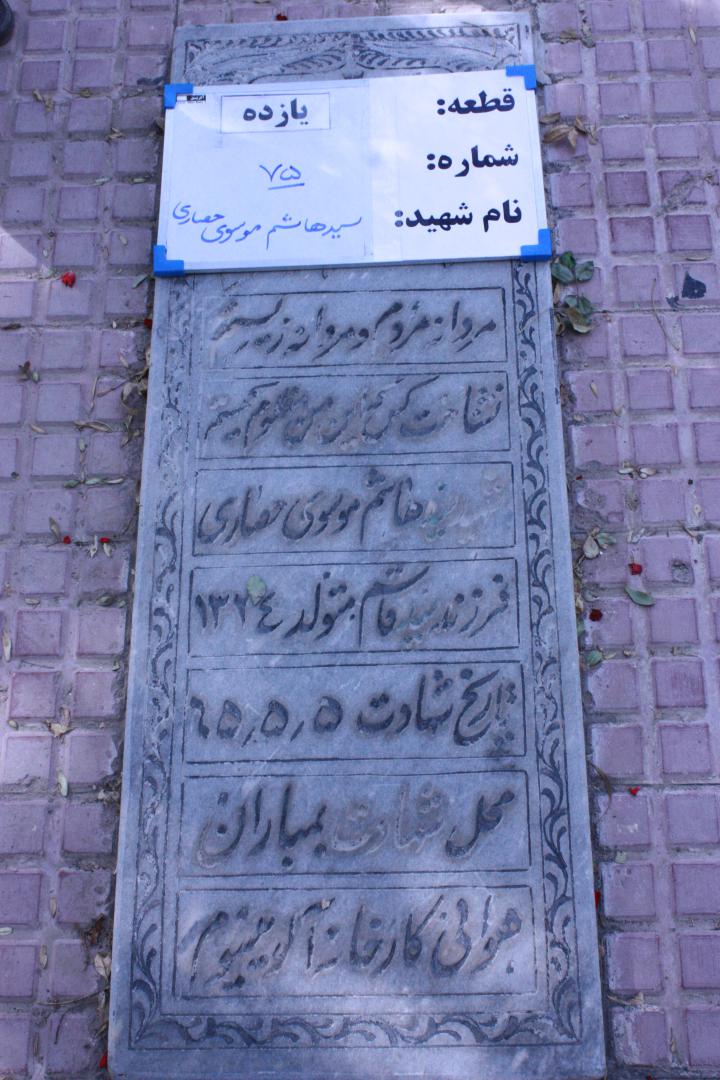 قطعه: یازده
شماره: ۷۵
نام شهید: سیدهاشم موسوی حصاری
مردانه مردم و مردانه زیستم
نشناخت کس که این من مظلوم کیستم
شهید سید هاشم موسوی حصاری
فرزند سید قاسم متولد ۱۳۲٤
تاریخ شهادت ٦۵٫۵٫۵
محل شهادت بمباران
هوائی کارخانه آلومینیوم